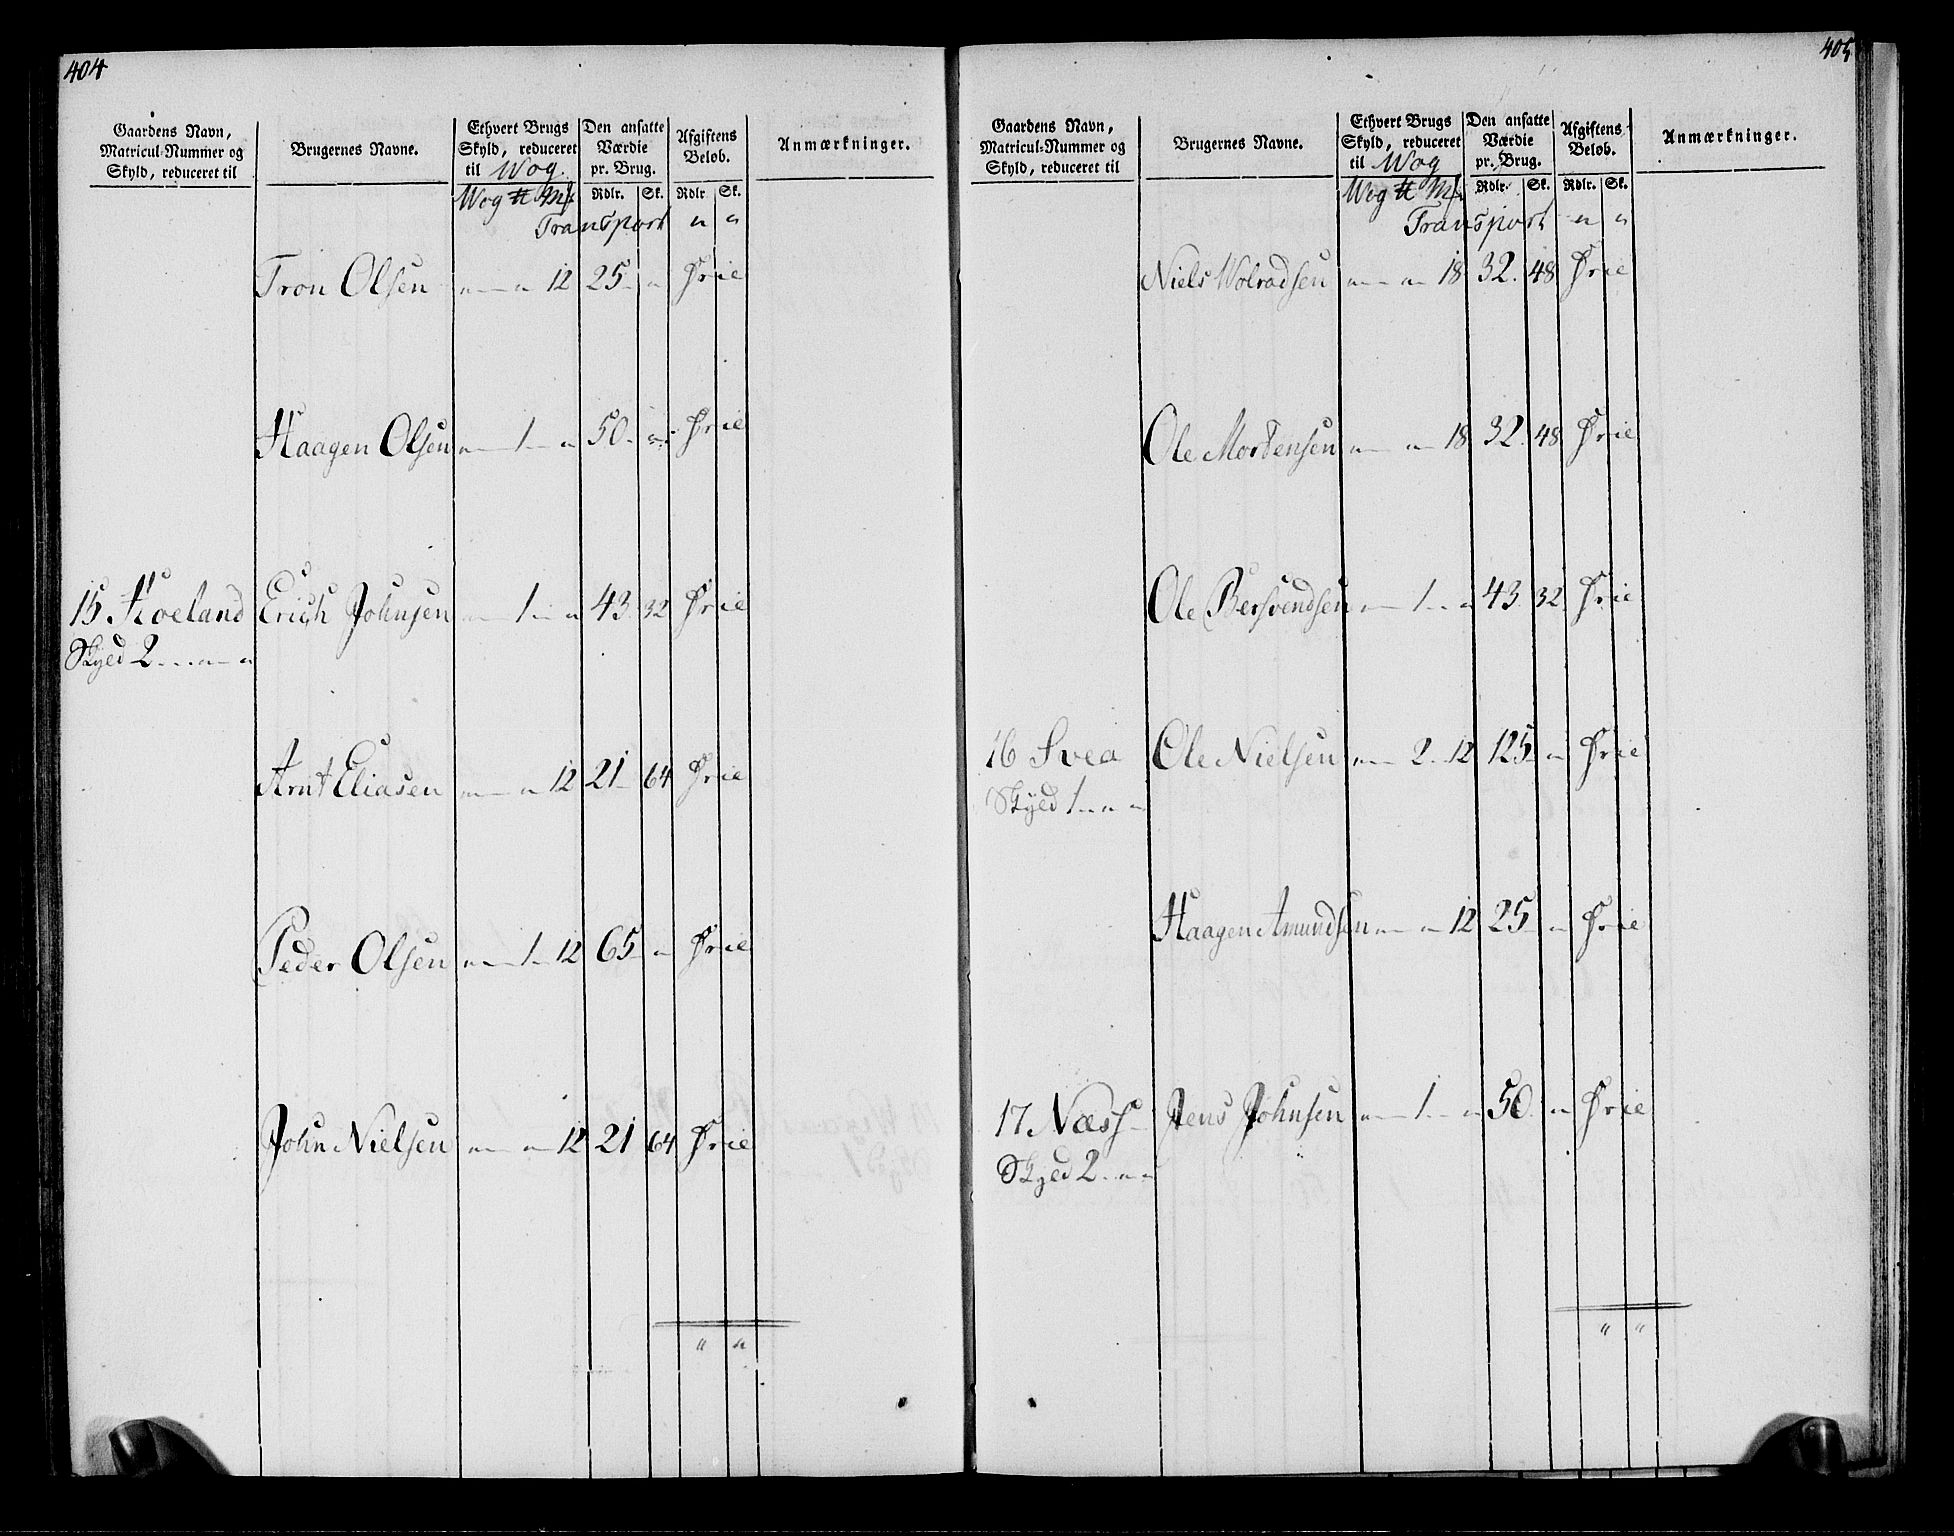 404
Gaardens Navn, Matricul-Nummer og Skyld, reduceret til
Brugernes Navne.
Ethvert Brugs Skyld, reduceret til Wog
Den ansatte Værdie pr. Brug.
Afgiftens Beløb.
Anmærkninger.
Wog ℔ Mk Rdlr. Sk. Rdlr Sk.
Transport " "
Tron Olsen " " 12 25 " Frie
Haagen Olsen " 1 " 50 " Frie
15 Hoeland Erich Johnsen " 1 " 43 32 Frie
Skyld 2 " "
Arnt Eliasen " " 12 21 64 Frie
Peder Olsen " 1 12 65 " Frie
John Nielsen " " 12 21 64 Frie
" "
405
Gaardens Navn, Matricul-Nummer og Skyld, reduceret til
Brugernes Navne.
Ethvert Brugs Skyld, reduceret til Wog
Den ansatte Værdie pr. Brug.
Afgiftens Beløb.
Anmærkninger.
Wog ℔ Mk Rdlr. Sk. Rdlr. Sk.
Transport " "
Niels Wolradsen " " 18 32 48 Frie
Ole Mortensen " " 18 32 48 Frie
Ole Bersvendsen " 1 " 43 32 Frie
16 Svea Ole Nielsen " 2 12 125 " Frie
Skyld 1 " "
Haagen Amundsen " " 12 25 " Frie
17 Næss Jens Johnsen " 1 " 50 " Frie
Skyld 2 " "
" "